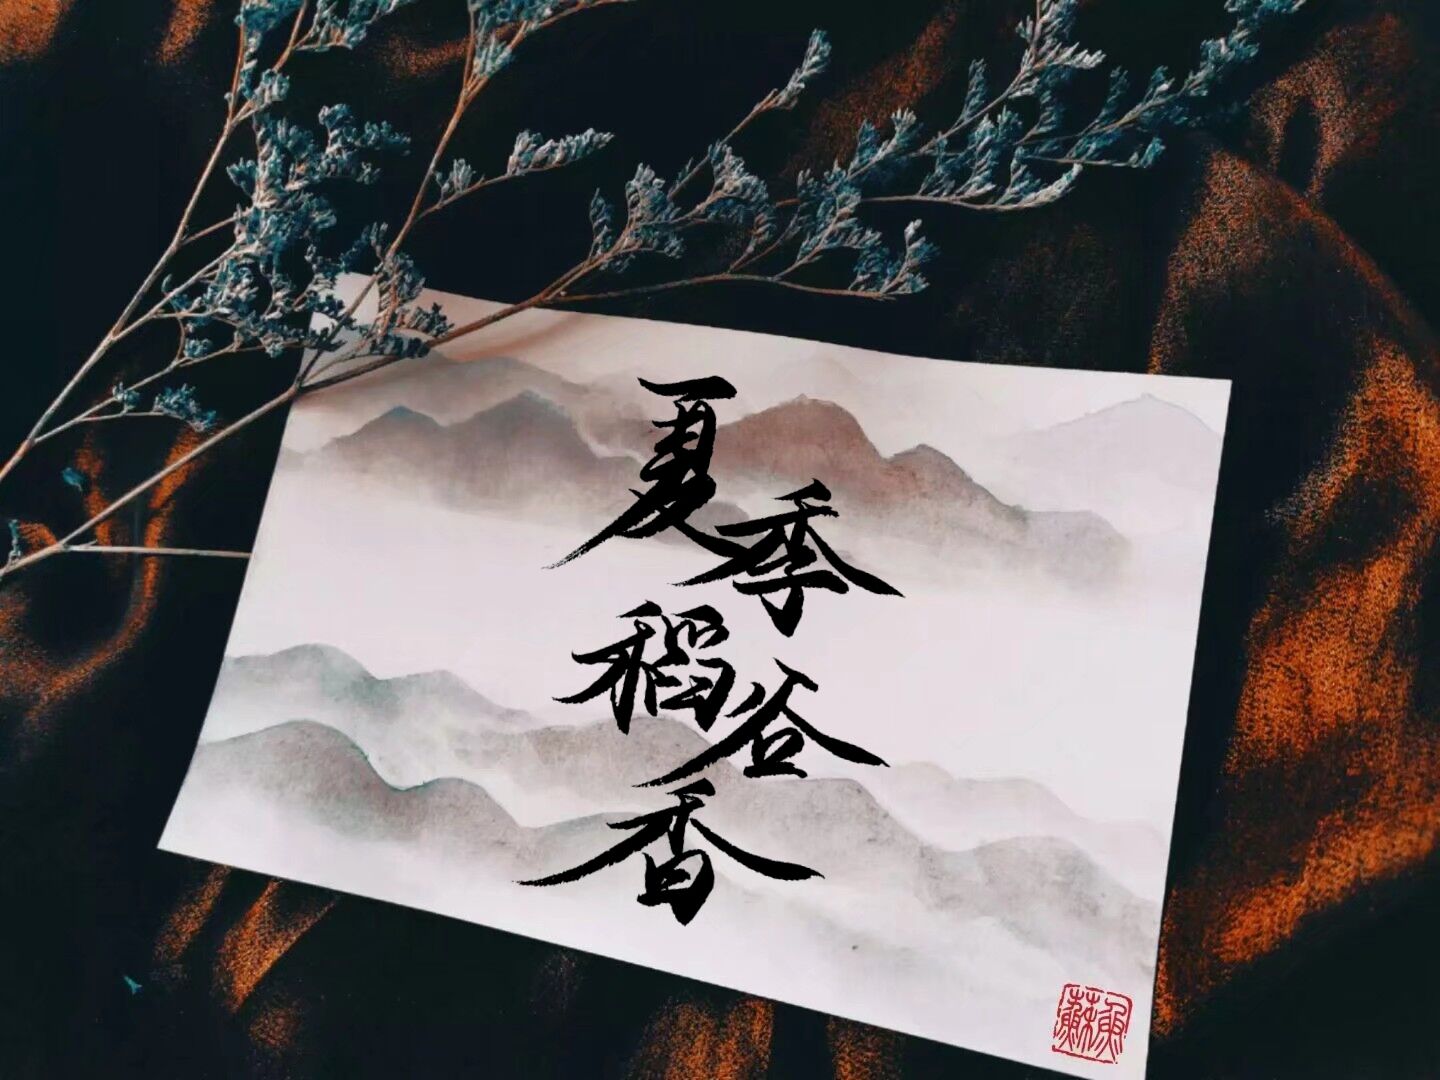 夏季
稻谷
香